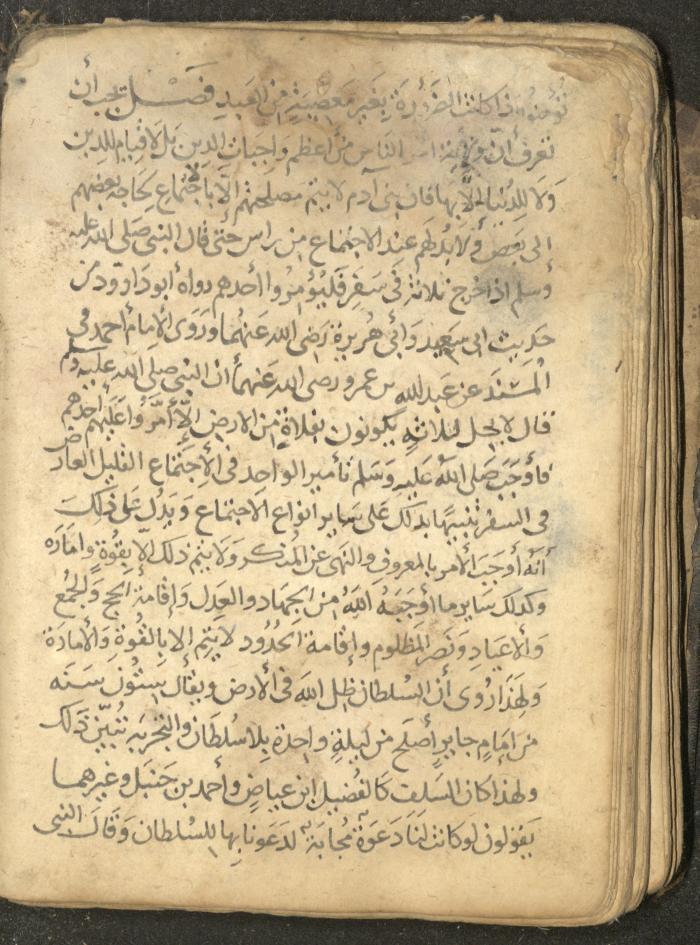 اذا كانت الضرورة بغير معصية من العبد فصل يجب أن
تعرف أن ولاية أمر الناس من أعظم واجبات الدين بل لا قيام للدين
ولا للدنيا إلا بها فان بني آدم لا يتم مصلحتهم إلا بالاجتماع لحاجة بعضهم
الى بعض ولا بد لهم عند الاجتماع من راس حتى قال النبي صلى الله عليه
وسلم اذا خرج ثلاثة في سفر فليؤمروا أحدهم رواه أبو داوود من
حديث ابي سعيد وأبي هريرة رضي الله عنهما وروى الامام احمد في
المسند عن عبد الله بن عمرو رضي الله عنهما أن النبي صلى الله عليه وسلم
قال لا يحل لثلاثة يكونون بفلاة من الارض إلا أمروا عليهم أحدهم
فأوجب صلى الله عليه وسلم تأمير الواحد في الاجتماع القليل العارض
في السفر تنبيها بذلك على ساير انواع الاجتماع ويدل على ذلك
أنه أوجب الأمر بالمعروف والنهي عن المنكر ولا يتم ذلك إلا بقوة وامارة
وكذلك ساير ما أوجبه الله من الجهاد والعدل وإقامة الحج والجمع
والأعياد ونصر المظلوم وإقامة الحدود لا يتم إلا بالقوة والأمارة
ولهذا روى أن السلطان ظل الله في الأرض ويقال ستون سنه
من إمام جاير أصلح من ليلة واحدة بلا سلطان والتجربة تبين ذلك
ولهذا كان السلف كالفضيل ابن عياض وأحمد بن حنبل وغيرهما
يقولون لو كانت لنا دعوة مجابة لدعونا بها للسلطان وقال النبي